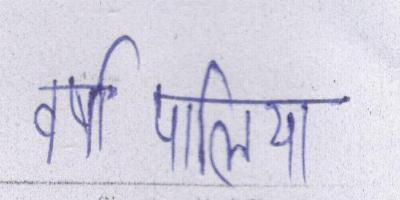 वर्षा पालिया